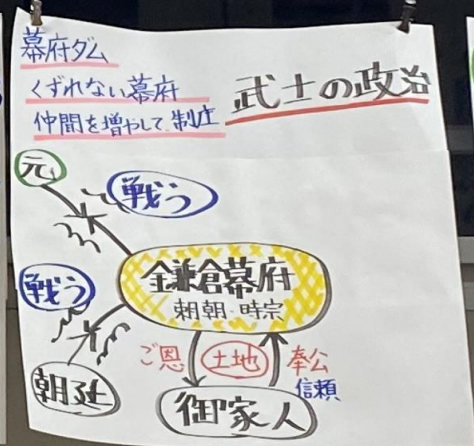 幕府ダム
くずれない幕府
仲間を増やして制圧
武士の政治
元
戦う
鎌倉幕府
頼朝・時宗
戦う
朝廷
ご恩
土地
奉公
信頼
御家人